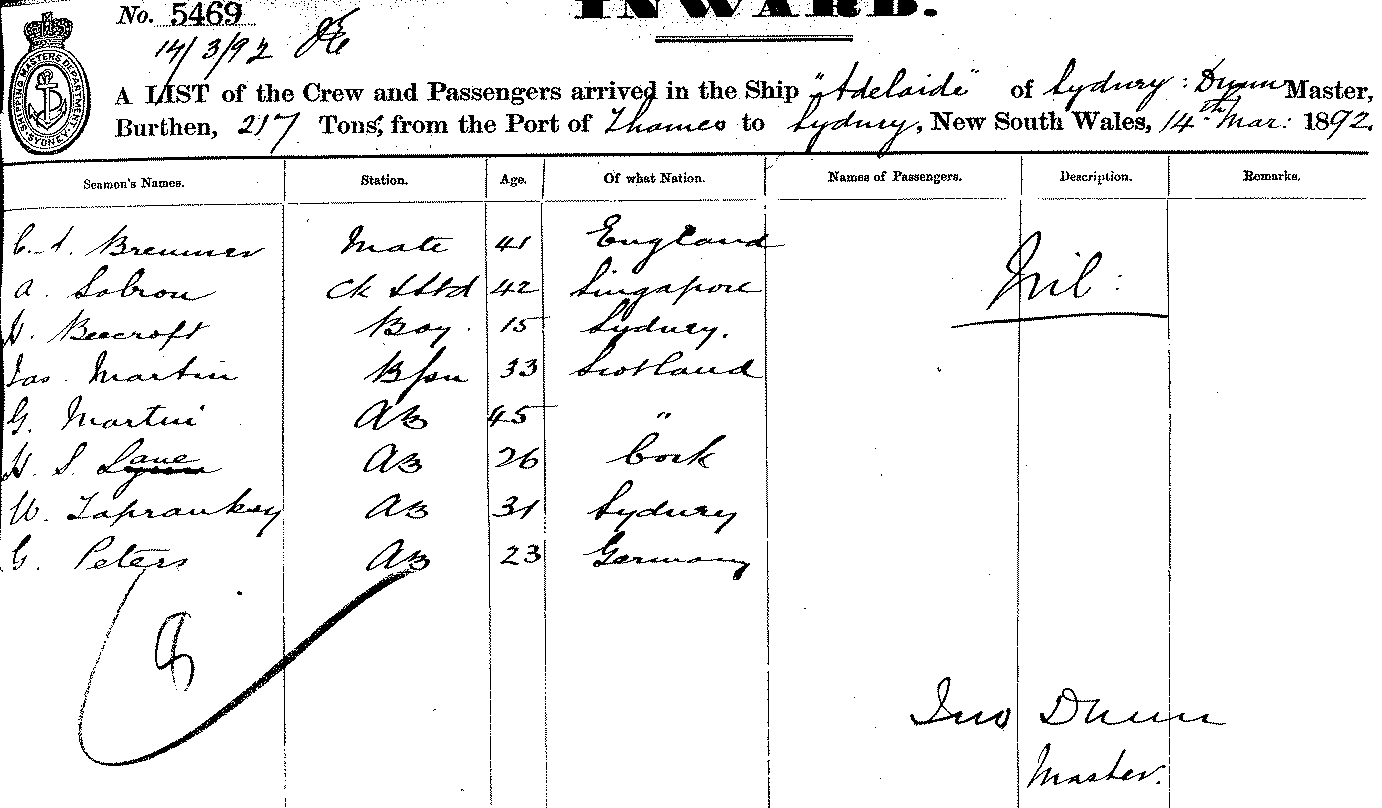 No. 5469 INWARD.
14/3/92
SHIPPING MASTERS DEPARTMENT SYDNEY
A LIST of the Crew and Passengers arrived in the Ship "Adelaide" of Sydney: Dunn Master,
Burthen, 217 Tons, from the Port of Thames to Sydney, New South Wales, 14th Mar: 1892.
Seamen's Names. Station. Age. Of what Nation. Names of Passengers. Description. Remarks.
Bremner Mate 41 England Nil:
A. Sobron Ck & Std 42 Singapore
H. Beecroft Boy. 15 Sydney.
Jas. Martin B/sn 33 Scotland
G. Martin AB 45 "
H. S. Lane AB 26 Cork
W. AB 31 Sydney
G. Peters AB 23 Germany
8
Jno Dunn
Master.